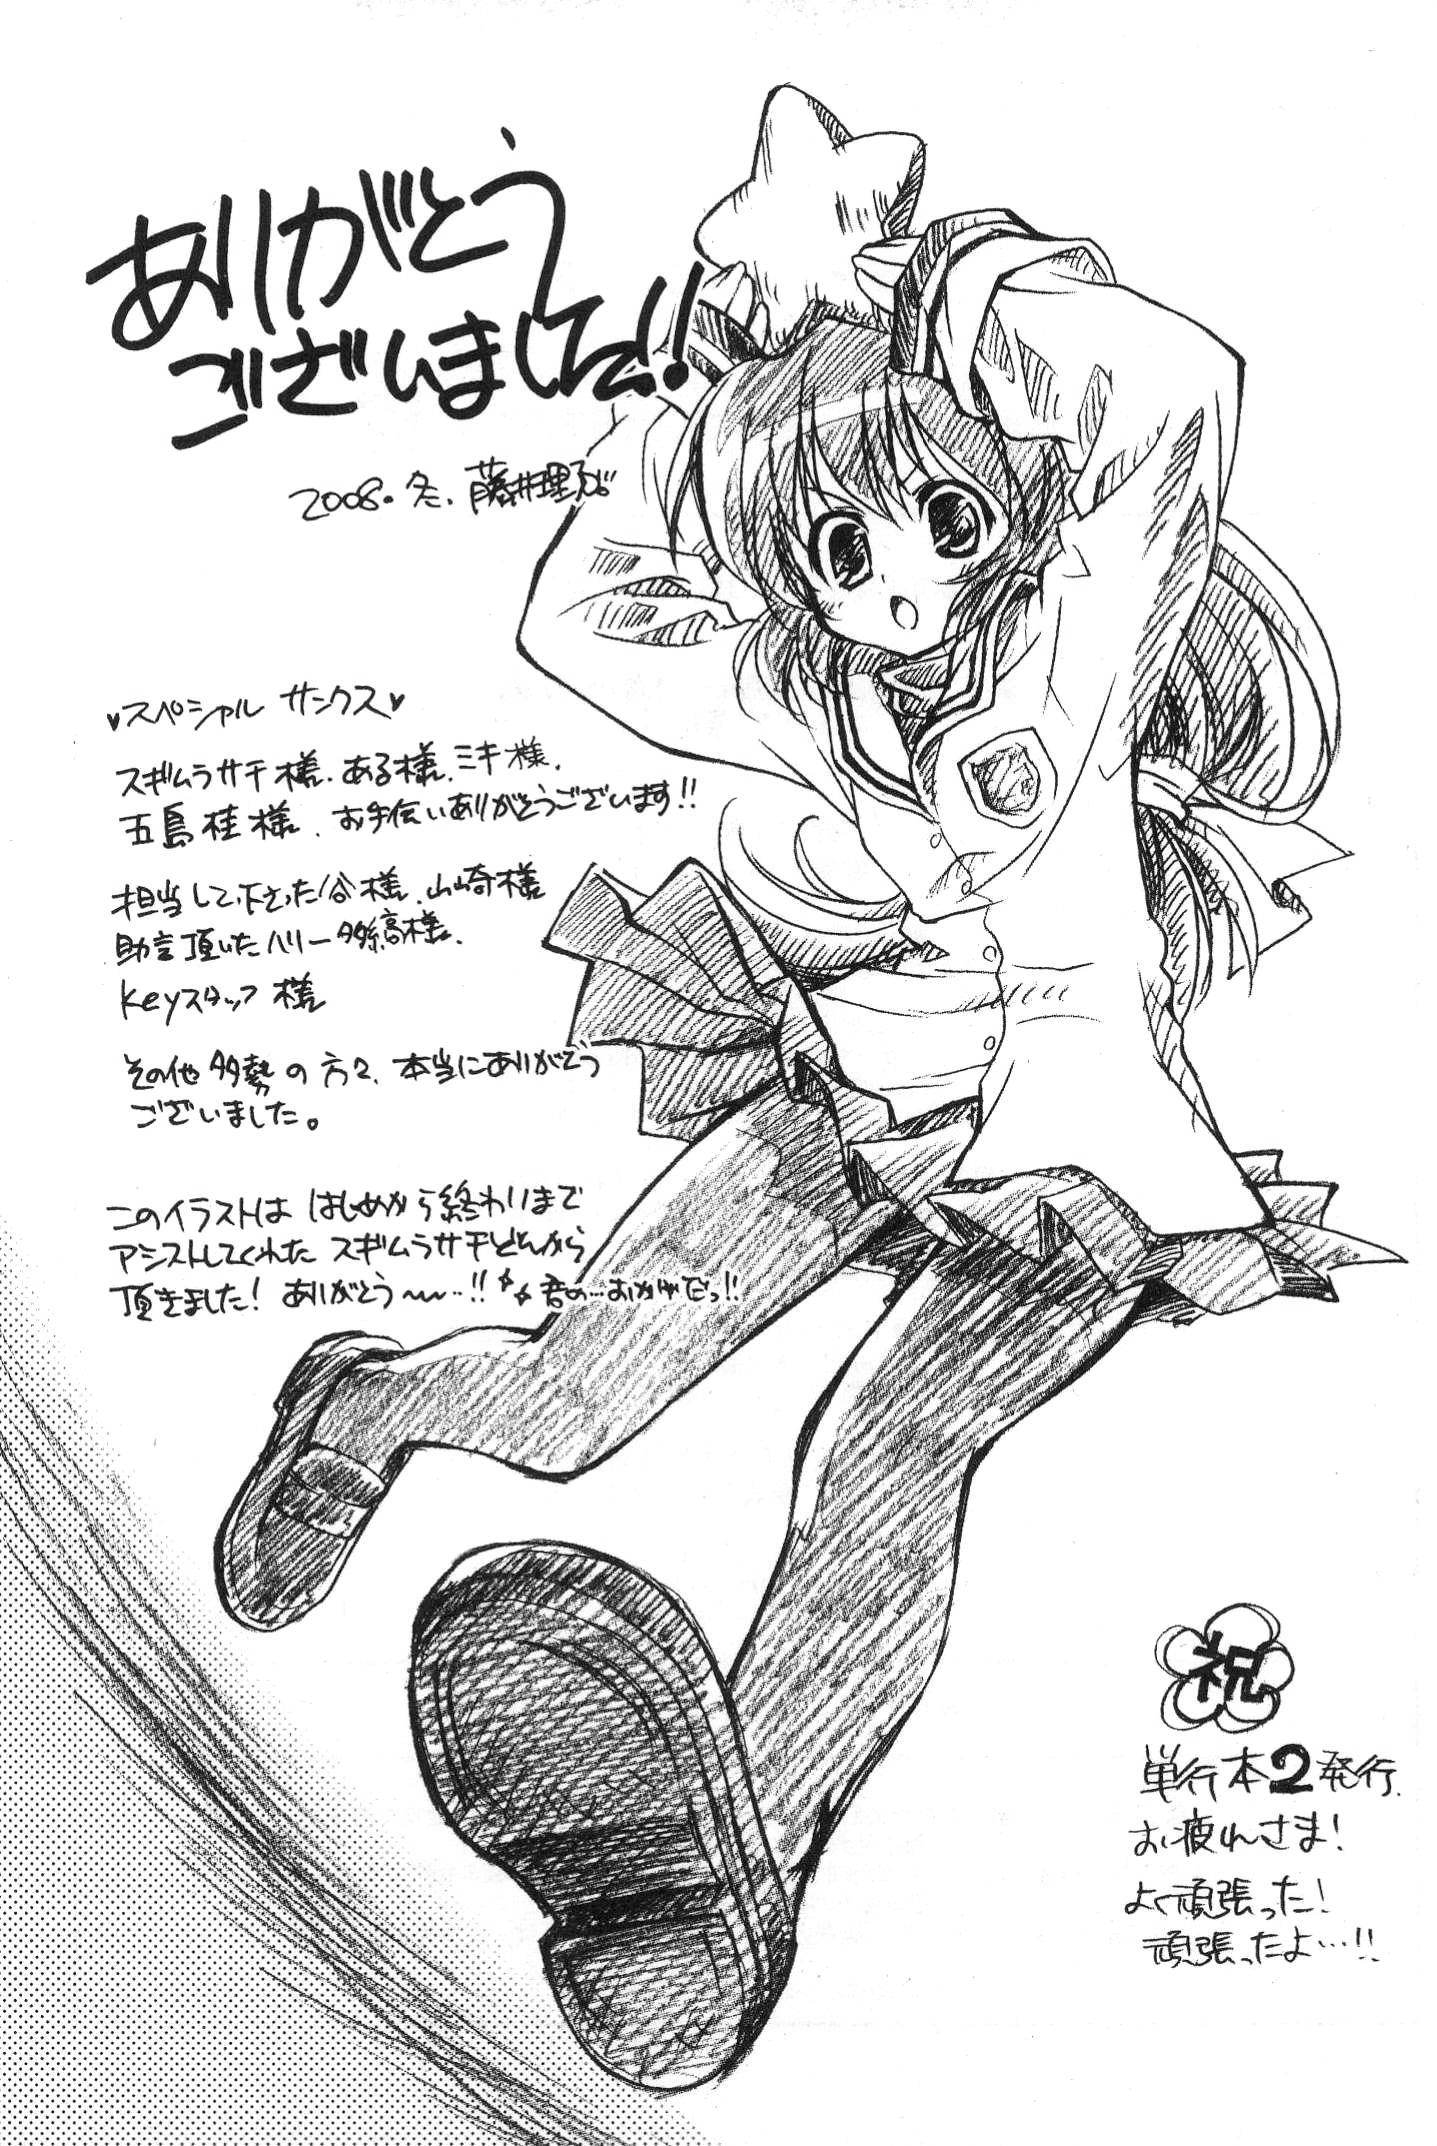 ありがとう
ございました!!
2008.冬.藤井理乃
♥スペシャル サンクス♥
スギムラサチ様、ある様、ミキ様、
五島桂様、お手伝いありがとうございます!!
担当して下さった谷様、山崎様
助言頂いたハリー多縞様、
keyスタッフ様
その他多勢の方々、本当にありがとう
ございました。
このイラストは はじめから終わりまで
アシストしてくれた スギムラサチどんから
頂きました! ありがとう〜…!! 君の…おかげだっ!!
祝
単行本2発行.
お疲れさま!
よく頑張った!
頑張ったよ…!!